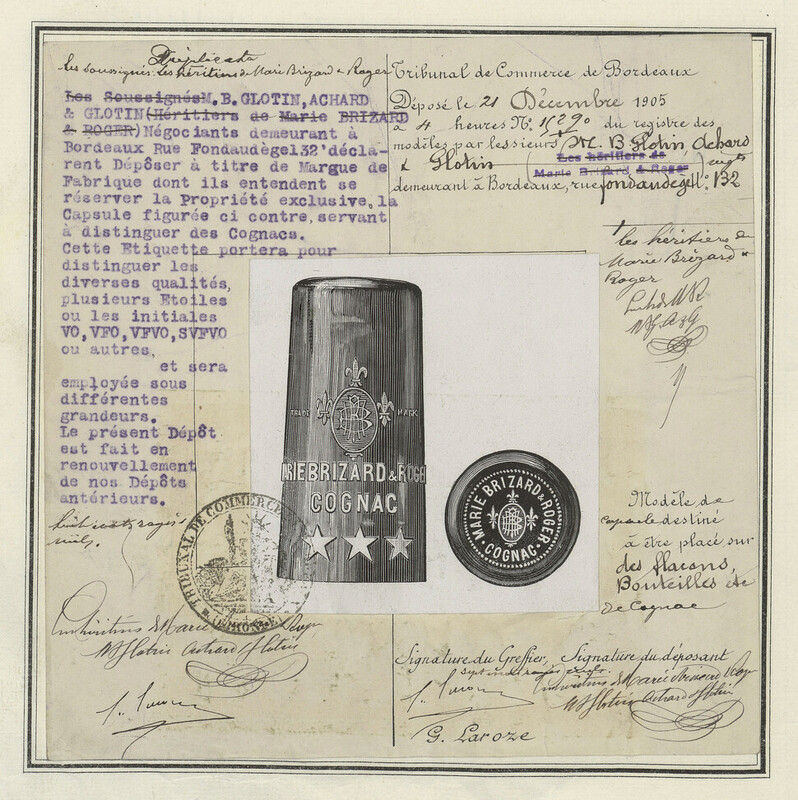 Duplicata
les soussignés les héritiers de Marie Brizard & Roger
Les Soussignés M.B.GLOTIN, ACHARD
& GLOTIN (Héritiers de Marie BRIZARD
& ROGER) Négociants demeurant à
Bordeaux Rue Fondaudège 132 décla-
rent Dépôser à titre de Margue de
Fabrique dont ils entendent se
réserver la Propriété exclusive, la
Capsule figurée ci contre, servant
à distinguer des Cognacs.
Cette Etiquette portera pour
distinguer les
diverses qualités,
plusieurs Etoiles
ou les initiales
VO, VFO, VFVO, SVFVO
ou autres,
et sera
employée sous
différentes
grandeurs.
Le présent Dépôt
est fait en
renouvellement
de nos Dépôts
antérieurs.
huit mots rayés
nuls.
Les héritiers de Marie Brizard & Roger
Glotin Achard Glotin
Tribunal de Commerce de Bordeaux
Déposé le 21 Décembre 1905
à 4 heures No. 1629 du registre des
modèles par les sieurs M. B Glotin Achard
& Glotin (Les héritiers de
Marie Brizard & Roger) ngts
demeurant à Bordeaux, rue fondaudège No. 132
les héritiers de
Marie Brizard &
Roger
TRADE MARK
MARIE BRIZARD & ROGER
COGNAC
MARIE BRIZARD & ROGER
COGNAC
TRIBUNAL DE COMMERCE
GIRONDE
Modèle de
capsule destiné
à être placé sur
des flacons,
Bouteilles etc
de Cognac
Signature du Greffier, Signature du déposant
sept mots rayés nuls.
Les héritiers de Marie Brizard & Roger
Glotin Achard Glotin
G. Laroze